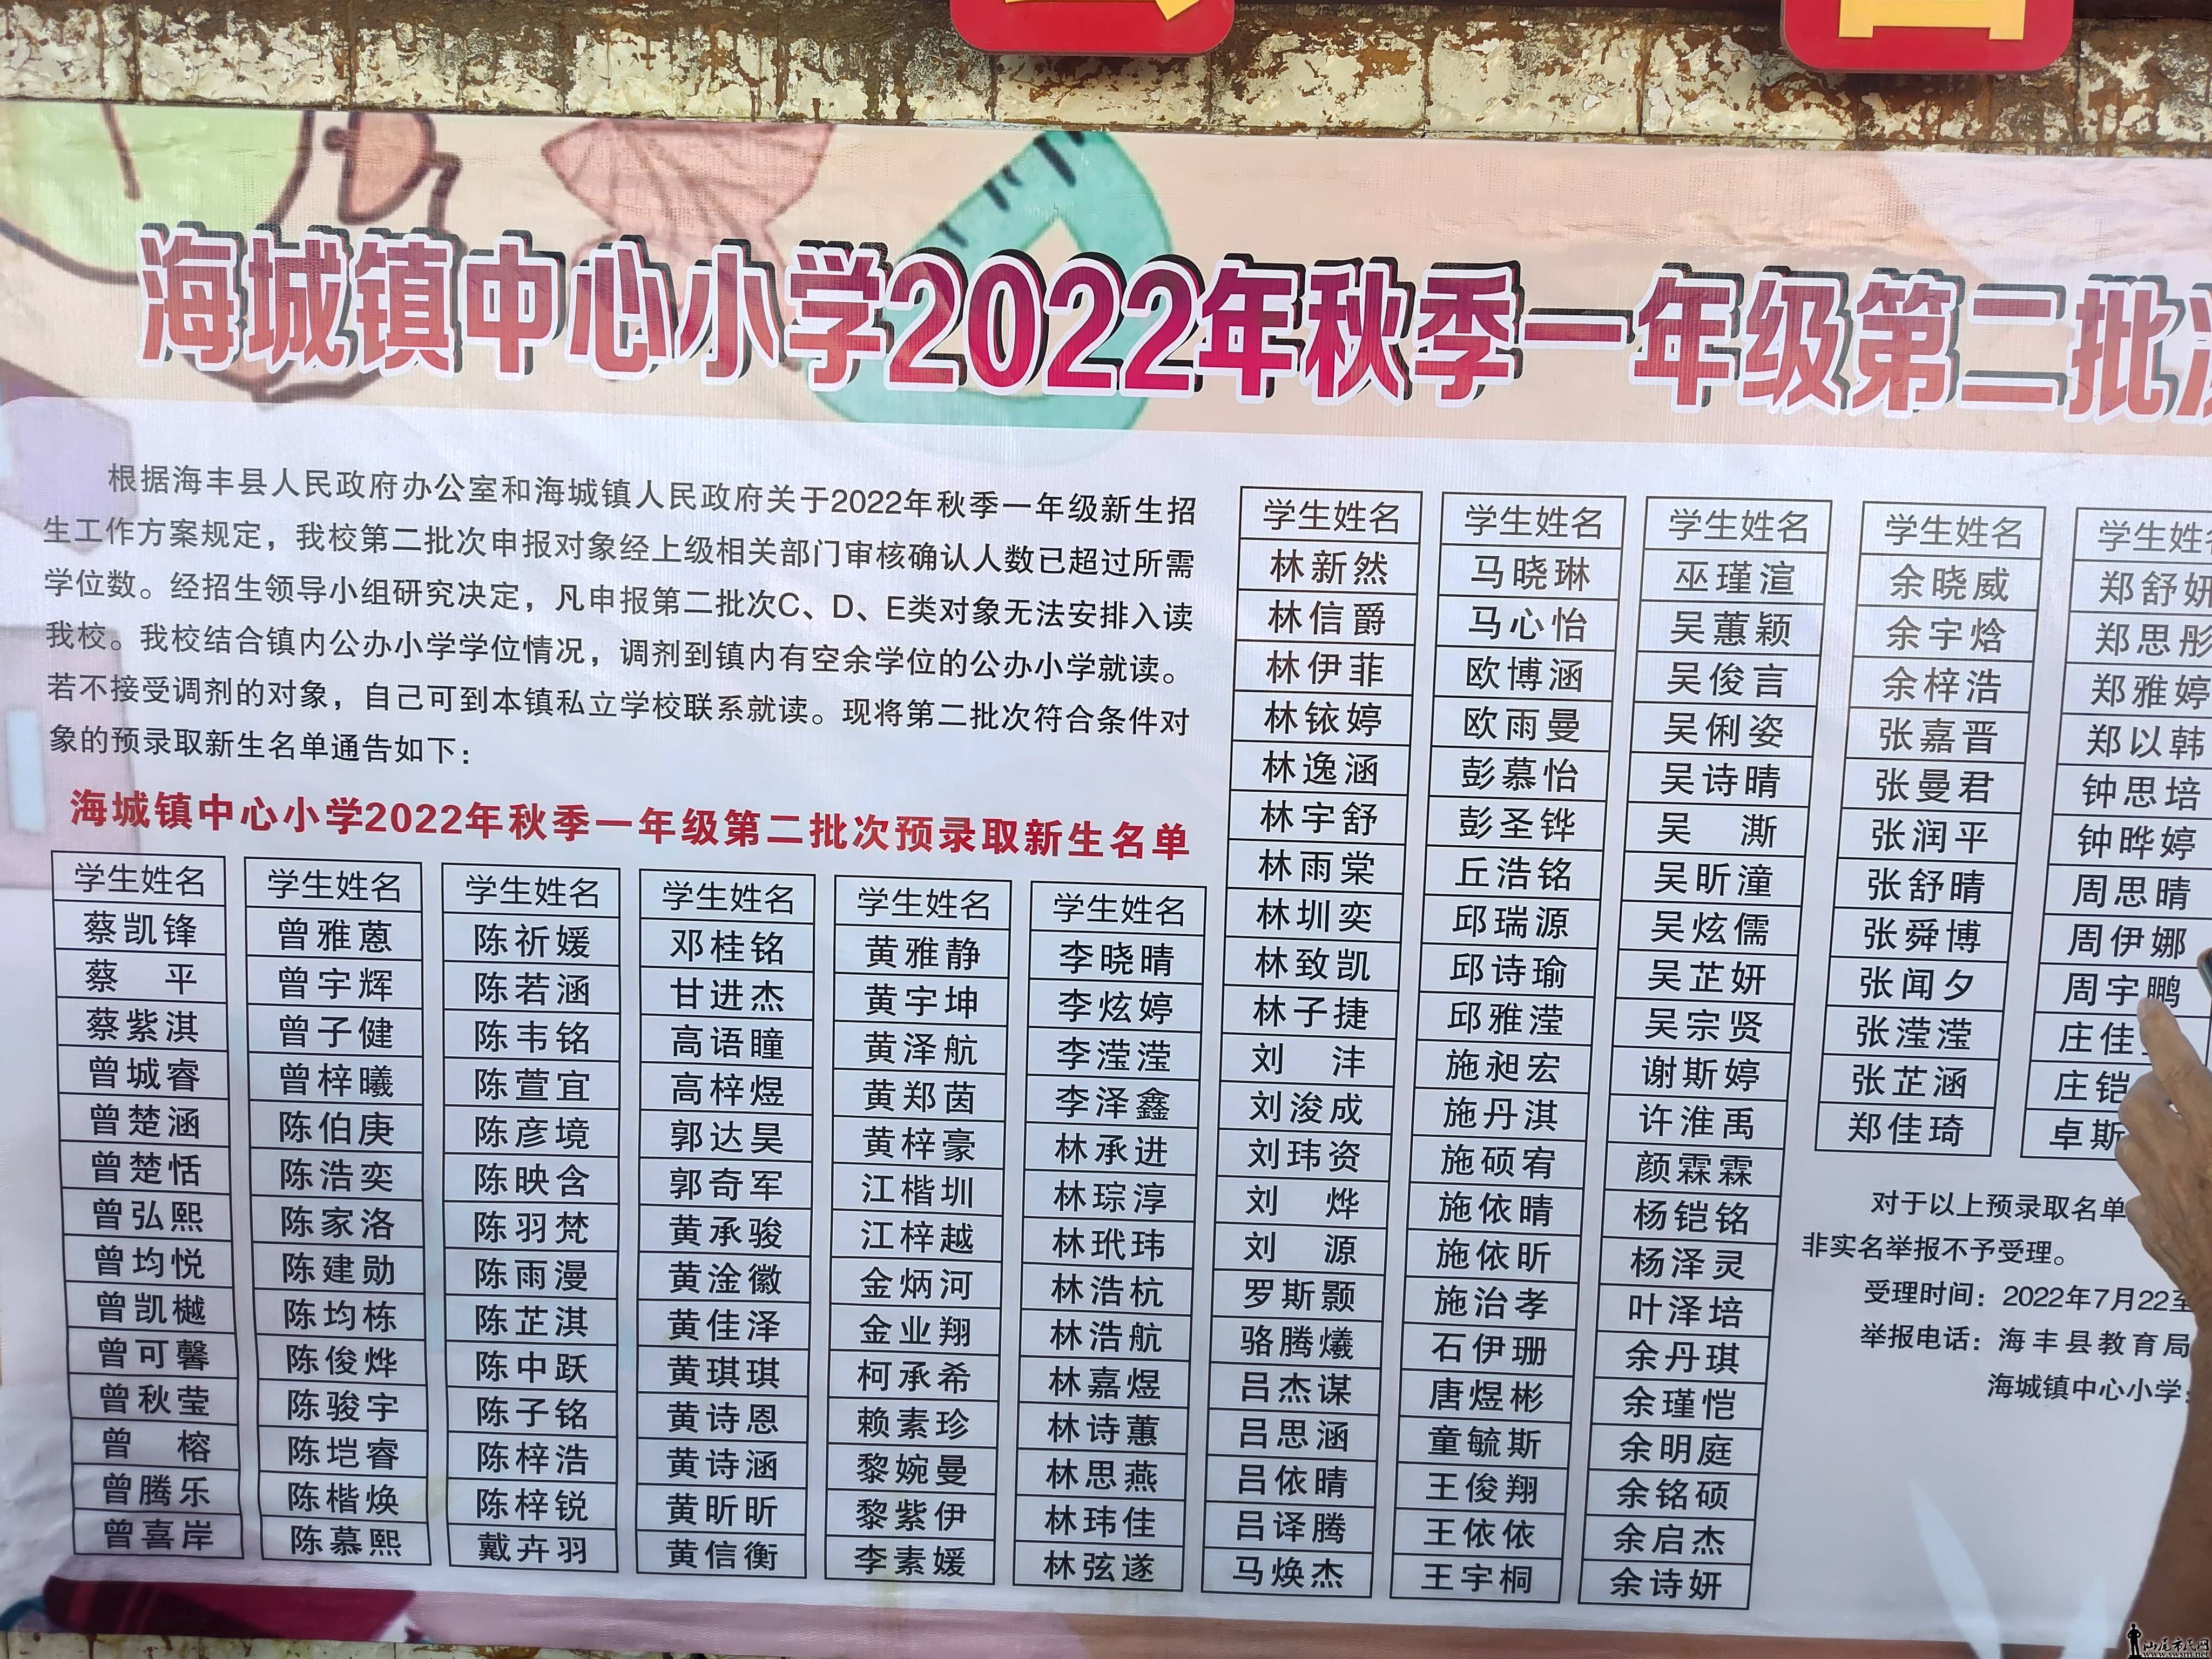 海城镇中心小学2022年秋季一年级第二批次
根据海丰县人民政府办公室和海城镇人民政府关于2022年秋季一年级新生招
生工作方案规定，我校第二批次申报对象经上级相关部门审核确认人数已超过所需
学位数。经招生领导小组研究决定，凡申报第二批次C、D、E类对象无法安排入读
我校。我校结合镇内公办小学学位情况，调剂到镇内有空余学位的公办小学就读。
若不接受调剂的对象，自己可到本镇私立学校联系就读。现将第二批次符合条件对
象的预录取新生名单通告如下：
海城镇中心小学2022年秋季一年级第二批次预录取新生名单
学生姓名
蔡凯锋
蔡 平
蔡紫淇
曾城睿
曾楚涵
曾楚恬
曾弘熙
曾均悦
曾凯樾
曾可馨
曾秋莹
曾 榕
曾腾乐
曾喜岸
学生姓名
曾雅蒽
曾宇辉
曾子健
曾梓曦
陈伯庚
陈浩奕
陈家洛
陈建勋
陈均栋
陈俊烨
陈骏宇
陈垲睿
陈楷焕
陈慕熙
学生姓名
陈祈媛
陈若涵
陈韦铭
陈萱宜
陈彦境
陈映含
陈羽梵
陈雨漫
陈芷淇
陈中跃
陈子铭
陈梓浩
陈梓锐
戴卉羽
学生姓名
邓桂铭
甘进杰
高语瞳
高梓煜
郭达昊
郭奇军
黄承骏
黄淦徽
黄佳泽
黄琪琪
黄诗恩
黄诗涵
黄昕昕
黄信衡
学生姓名
黄雅静
黄宇坤
黄泽航
黄郑茵
黄梓豪
江楷圳
江梓越
金炳河
金业翔
柯承希
赖素珍
黎婉曼
黎紫伊
李素媛
学生姓名
李晓晴
李炫婷
李滢滢
李泽鑫
林承进
林琮淳
林玳玮
林浩杭
林浩航
林嘉煜
林诗蕙
林思燕
林玮佳
林弦遂
学生姓名
林新然
林信爵
林伊菲
林铱婷
林逸涵
林宇舒
林雨棠
林圳奕
林致凯
林子捷
刘 沣
刘浚成
刘玮资
刘 烨
刘 源
罗斯颢
骆腾爔
吕杰谋
吕思涵
吕依晴
吕译腾
马焕杰
学生姓名
马晓琳
马心怡
欧博涵
欧雨曼
彭慕怡
彭圣铧
丘浩铭
邱瑞源
邱诗瑜
邱雅滢
施昶宏
施丹淇
施硕宥
施依晴
施依昕
施治孝
石伊珊
唐煜彬
童毓斯
王俊翔
王依依
王宇桐
学生姓名
巫瑾渲
吴蕙颖
吴俊言
吴俐姿
吴诗晴
吴 澌
吴昕潼
吴炫儒
吴芷妍
吴宗贤
谢斯婷
许淮禹
颜霖霖
杨铠铭
杨泽灵
叶泽培
余丹琪
余瑾恺
余明庭
余铭硕
余启杰
余诗妍
学生姓名
余晓威
余宇焓
余梓浩
张嘉晋
张曼君
张润平
张舒晴
张舜博
张闻夕
张滢滢
张芷涵
郑佳琦
学生姓名
郑舒妍
郑思彤
郑雅婷
郑以韩
钟思培
钟晔婷
周思晴
周伊娜
周宇鹏
庄佳
庄铠
卓斯
对于以上预录取名单
非实名举报不予受理。
受理时间：2022年7月22至
举报电话：海丰县教育局
海城镇中心小学：
汕尾市民网
www.swsm.net